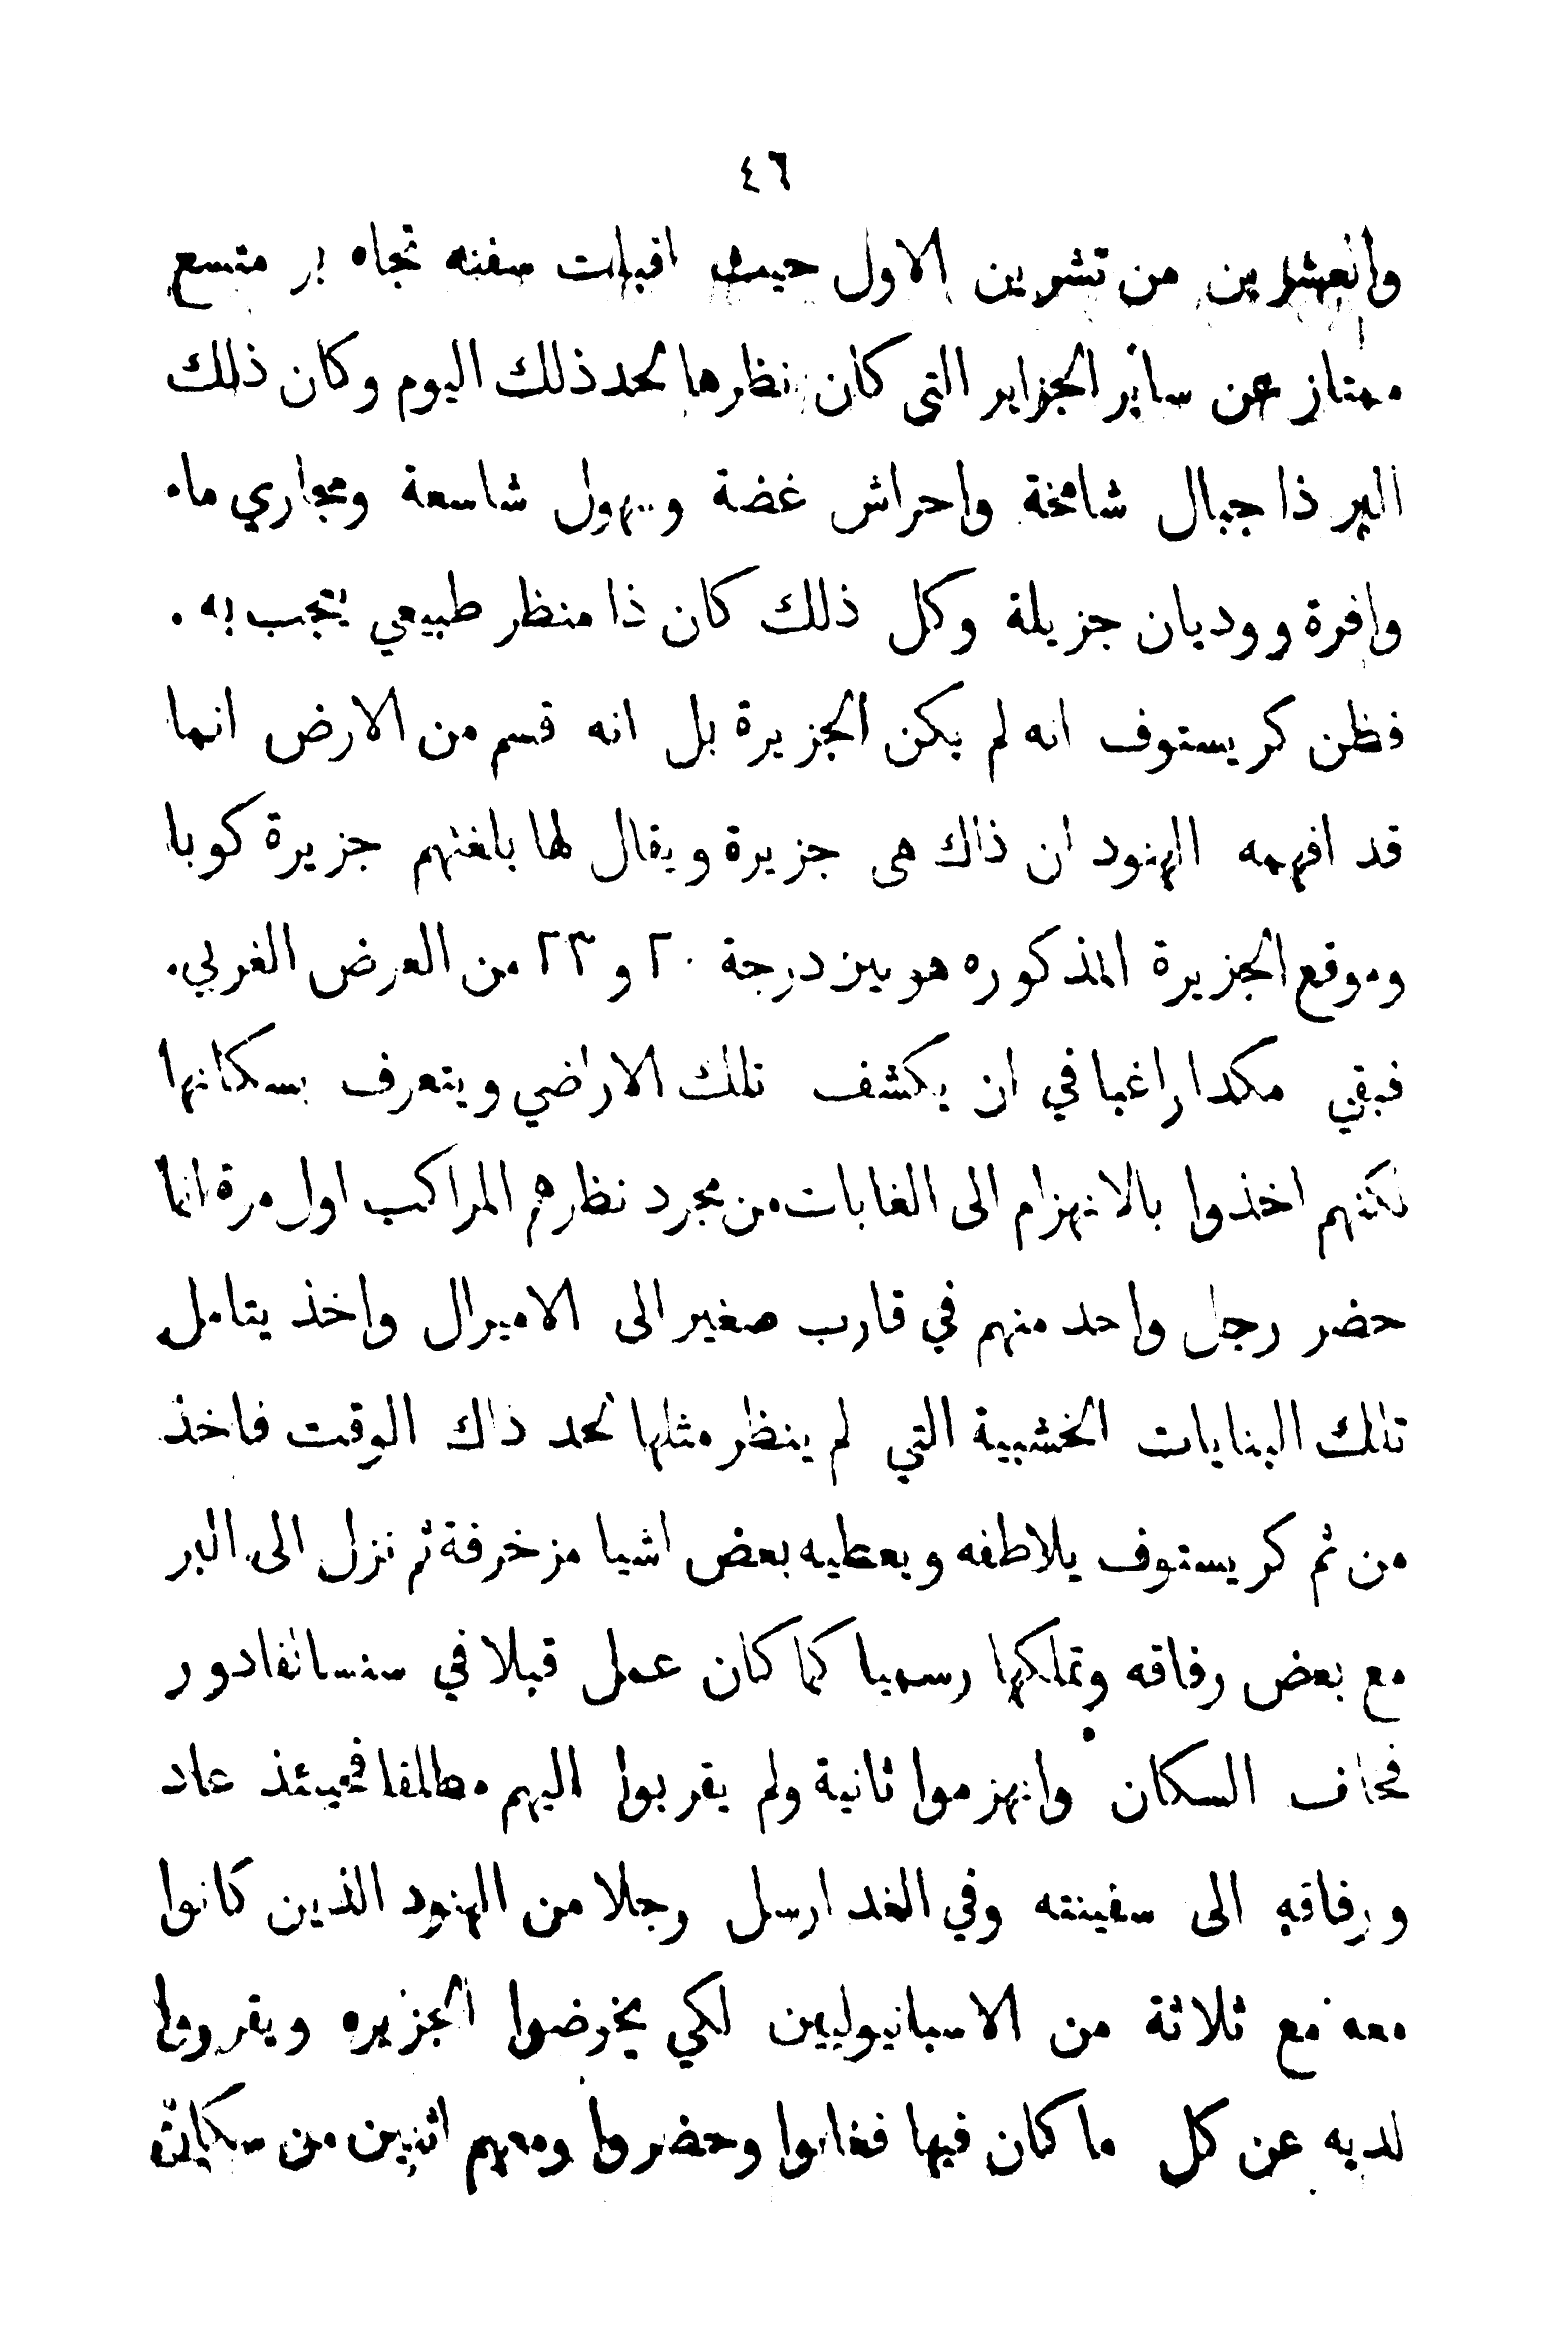 ٤٦
والعشرين من تشرين الاول حيث اقبلت سفنه تجاه بر متسع
ممتاز عن ساير الجزاير التي كان نظرها لحد ذلك اليوم وكان ذلك
البر ذا جبال شامخة واحراش غضة وسهول شاسعة ومجاري ماء
وافرة ووديان جزيلة وكل ذلك كان ذا منظر طبيعي يتجب به ٠
فظن كريستوف انه لم يكن الجزيرة بل انه قسم من الارض انما
قد افهمه الهنود ان ذاك هي جزيرة ويقال لها بلغتهم جزيرة كوبا
وموقع الجزيرة المذكوره هو بين درجة ٢٠ و ٢٣ من العرض الغربي٠
فبقي مكدا راغبا في ان يكشف تلك الاراضي ويتعرف بسكانها
لكنهم اخذوا بالانهزام الى الغابات من مجرد نظرهم المراكب اول مرة انما
حضر رجل واحد منهم في قارب صغير الى الاميرال واخذ يتامل
تلك البنايات الخشبية التي لم ينظر مثلها لحد ذاك الوقت فاخذ
من ثم كريستوف يلاطفه ويعطيه بعض اشيا مزخرفة ثم نزل الى البر
مع بعض رفاقه وتملكها رسميا كما كان عمل قبلا في سنسالفادور
فخاف السكان وانهزموا ثانية ولم يقربوا اليهم مطلقا فحينئذ عاد
ورفاقه الى سفينته وفي الغد ارسل رجلا من الهنود الذين كانوا
معه مع ثلاثة من الاسبانيوليين لكي يخرضوا الجزيره ويقرروا
لديه عن كل ما كان فيها فغابوا وحضروا ومعهم اثنين من سكان